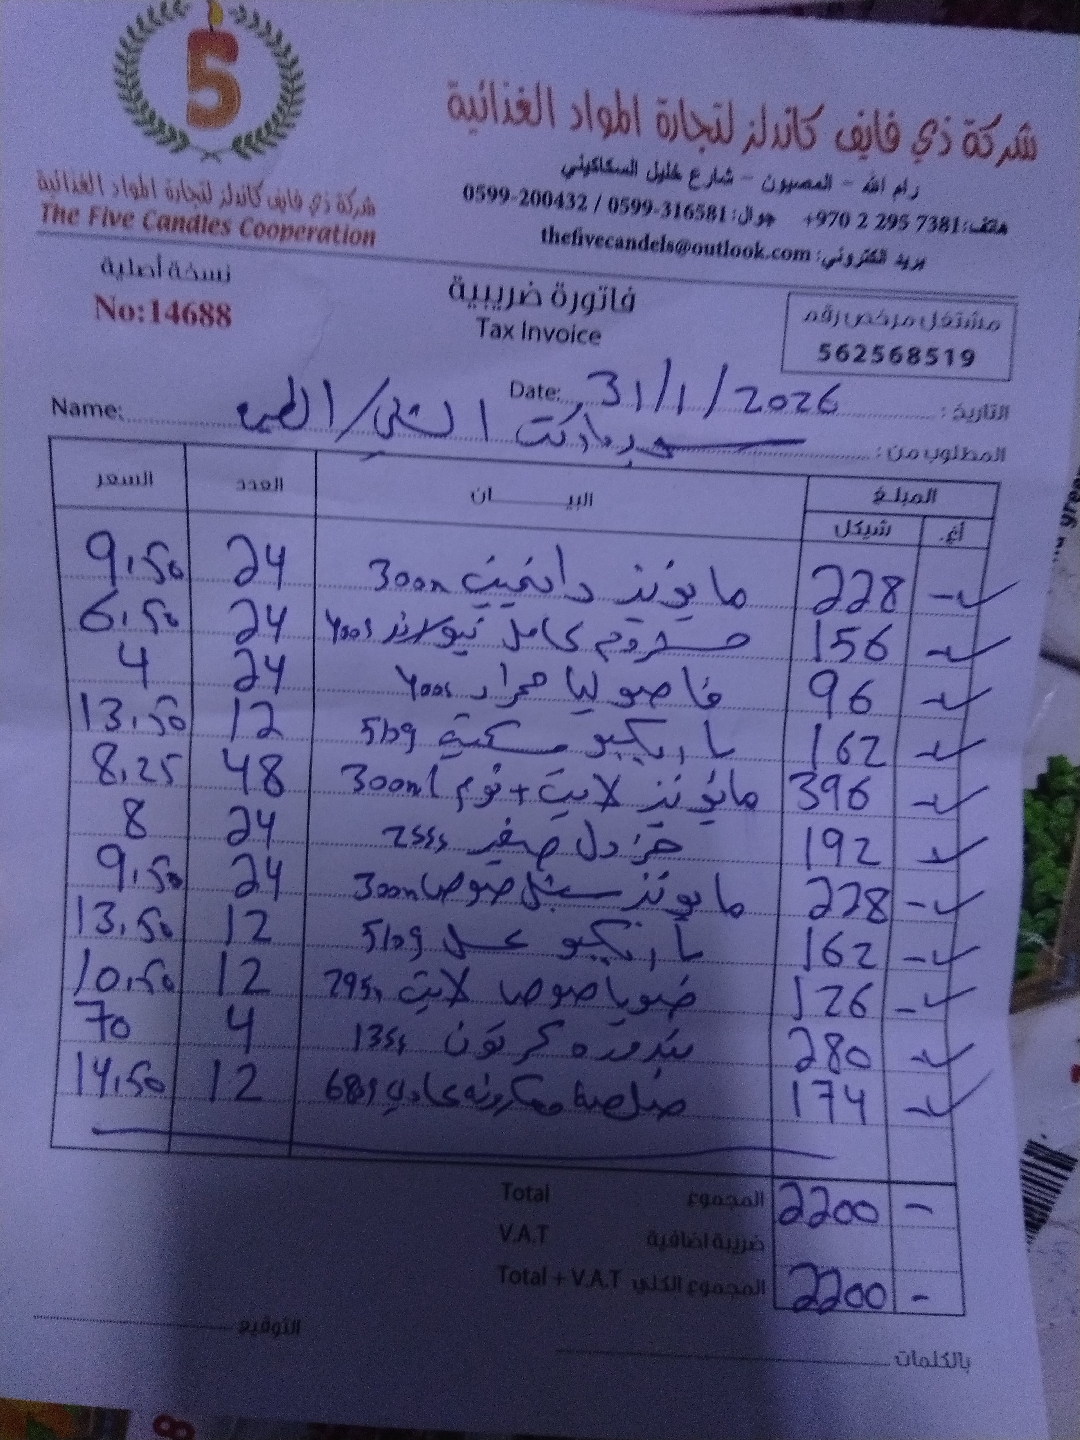 5
شركة ذي فايف كاندلز لتجارة المواد الغذائية
رام الله - المصيون - شارع خليل السكاكيني
هاتف: +970 2 295 7381 جوال: 0599-316581 / 0599-200432
بريد الكتروني: thefivecandels@outlook.com
شركة ذي فايف كاندلز لتجارة المواد الغذائية
The Five Candles Cooperation
نسخة أصلية
No:14688
فاتورة ضريبية
Tax Invoice
مشتغل مرخص رقم
562568519
التاريخ: Date: 31/1/2026
المطلوب من: Name:
المبلغ البيــــــان العدد السعر
أغ. شيكل
- 228 مايونيز 300m 24 9.50
- 156 كامل 400g 24 6.50
- 96 فاصوليا حمراء 400g 24 4
- 162 باربكيو 510g 12 13.50
- 396 مايونيز لايت + ثوم 300m 48 8.25
- 192 خردل صغير 255g 24 8
- 228 مايونيز 300m 24 9.50
- 162 باربكيو عسل 510g 12 13.50
- 126 صوياصوص لايت 295m 12 10.50
- 280 بندوره كرتون 135g 4 70
- 174 صلصة معكرونه عادي 680g 12 14.50
- 2200 المجموع Total
ضريبة اضافية V.A.T
- 2200 المجموع الكلي Total + V.A.T
بالكلمات التوقيع